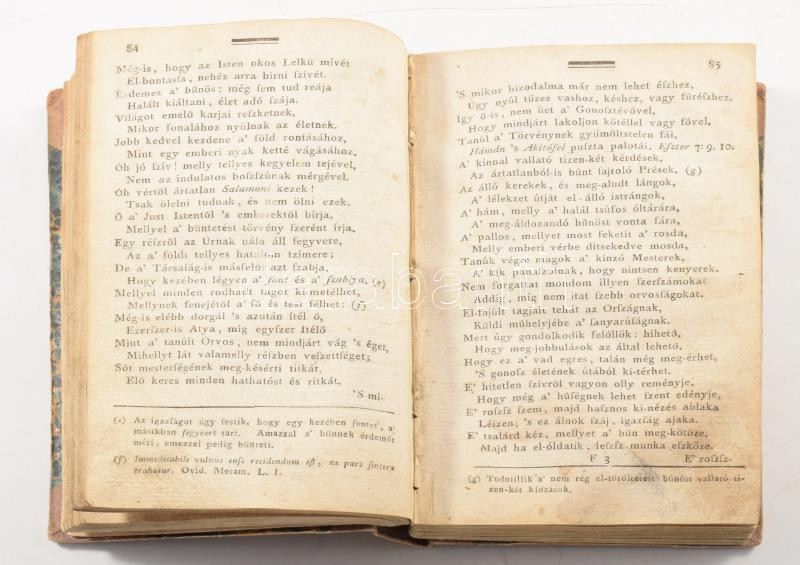 84
Még-is, hogy az Isten okos Lelkű mívét
El-bontasſa, nehéz arra birni ſzivét.
Érdemes a' bűnös: még ſem tud reája
Halált kiáltani, élet adó ſzája.
Világot emelő karjai reſzketnek,
Mikor fonalához nyúlnak az életnek.
Jobb kedvel kezdene a' föld rontásához,
Mint egy emberi nyak ketté vágásához.
Óh jó ſzív! melly tellyes kegyelem tejével,
Nem az indulatos boſzſzúnak mérgével.
Óh vértől ártatlan Salamoni kezek!
Tsak ölelni tudnak, és nem ölni ezek.
Ő a' Just Istentől 's emberektől bírja,
Mellyel a' büntetést törvény ſzerént írja.
Egy réſzről az Úrnak nála áll fegyvere,
Az a' földi tellyes hatalom tzímere;
De a' Társaság-is másfelől azt ſzabja,
Hogy kezében légyen a' font és a' ſzablya, (e)
Mellyel minden rodhatt tagot ki-metélhet,
Mellynek fenejétől a' fő és test félhet: (f)
Még-is elébb dorgál 's azután ítél ő,
Ezerſzer-is Atya, míg egyſzer Ítélő
Mint a' tanúlt Orvos, nem mindjárt vág 's éget,
Mihellyt lát valamelly réſzben veſzettséget;
Sőt mesterségének meg-késérti titkát,
Elő keres minden hathatóst és ritkát,
'S mi-
(e) Az igazſágot úgy festik, hogy egy kezében fontot, a'
másikban fegyvert tart. Amazzal a' bűnnek érdemét
méri, emezzel pedig bűnteti.
(f) Immedicabile vulnus enſe recidendum eſt, ne pars ſincera
trahatur. Ovid. Metam. L. I.
85
'S mikor bizodalma már nem lehet éſzhez,
Úgy nyúl tüzes vashoz, késhez, vagy fűréſzhez.
Így ő-is, nem üt a' Gonoſztévővel,
Hogy mindjárt lakoljon kötéllel vagy fővel.
Tanúl a' Törvénynek gyümöltstelen fái,
Hámán 's Akitófel puſzta palotái. Eſzter 7: 9. 10.
A' kínnal vallató tizen-két kérdések,
Az ártatlanból-is bűnt ſajtoló Prések. (g)
Az álló kerekek, és meg-aludt lángok,
A' lélekzet útját el-álló istrángok,
A' hám, melly a' halál tsúfos óltárára,
A' meg-áldozandó bűnöst vonta fára,
A' pallos, mellyet most feketít a' rosda,
Melly emberi vérbe ditsekedve mosda,
Tanúk végre magok a' kínzó Mesterek,
A' kik panaſzolnak, hogy nintsen kenyerek.
Nem forgattat mondom illyen ſzerſzámokat
Addig, míg nem tat ſzebb orvosságokat.
El-fajúlt tagjait tehát az Orſzágnak,
Küldi műhelyjébe a' ſanyarúſágnak.
Mert úgy gondolkodik felőllök: hihető,
Hogy meg-jobbulások az által lehető.
Hogy ez a' vad egres, talán még meg-érhet,
'S gonosz életének útából ki-térhet.
E' hitetlen ſzívről vagyon olly reménye,
Hogy még a' hűſégnek lehet ſzent edénye,
E' roſzſz ſzem, majd haſznos ki-nézés ablaka
Léſzen; 's ez álnok ſzáj, igazság ajaka.
E' tsalárd kéz, mellyet a' bűn meg-kötöze,
Majd ha el-óldatik, leſzſz-munka eſzköze.
F 3 E' roſzſz
(g) Tudniillik a' nem rég el-töröltetett bűnöst vallató ti-
zen-két kínzások.